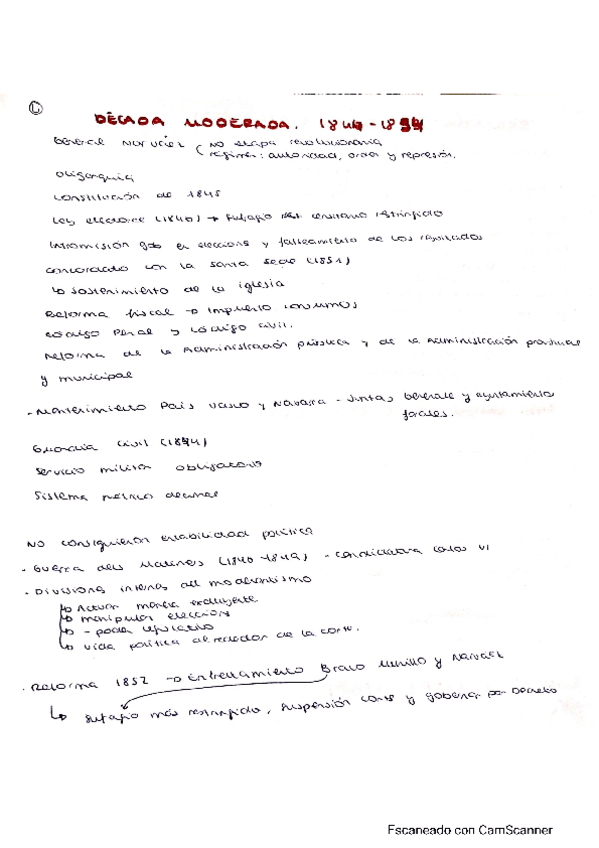 DÉCADA MODERADA. 1844-1854
General Narváez (no etapa revolucionaria
régimen: autoridad, orden y represión.
oligarquía
constitución de 1845
Ley electoral (1846) → sufragio censitario restringido
Intromisión gob en elecciones y falseamiento de los resultados
concordato con la santa sede (1851)
↳ sostenimiento de la iglesia
Reforma fiscal → Impuesto consumos
código Penal y código civil.
Reforma de la Administración pública y de la Administración provincial
y municipal
- Mantenimiento País vasco y Navarra - Juntas Generales y ayuntamiento
forales.
Guardia civil (1844)
Servicio militar obligatorio
Sistema métrico decimal
NO consiguieron estabilidad política
- Guerra dels Matiners (1846-1849) - candidatura carlos VI
- Divisiones internas del moderantismo
↳ Actuar manera excluyente
↳ manipular elecciones
↳ - poder legislativo
↳ vida política alrededor de la corte.
- Reforma 1852 → Entrentamiento Bravo Murillo y Narváez
↳ sufragio más restringido, suspensión cortes y gobernar por Decreto
Escaneado con CamScanner